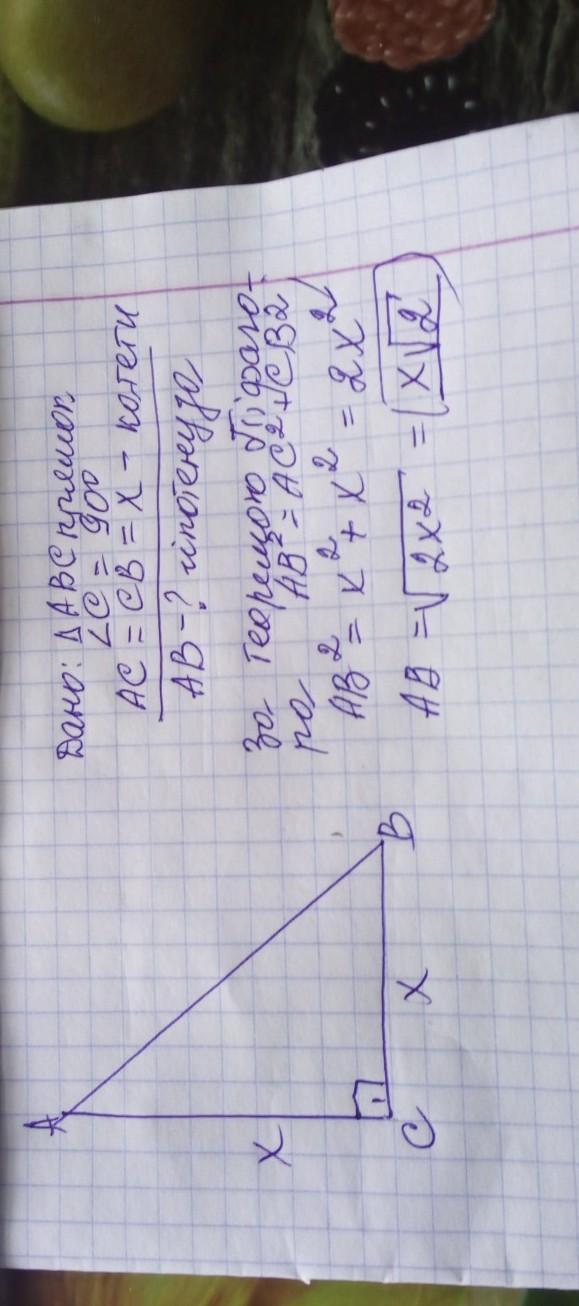 Дано: ΔABC прямок
∠C = 90°
AC = CB = x - катети
AB - ? гіпотенуза
За теоремою Піфаго-
ра AB² = AC² + CB²
AB² = x² + x² = 2x²
AB = √2x² = x√2
A
x
C
x
B